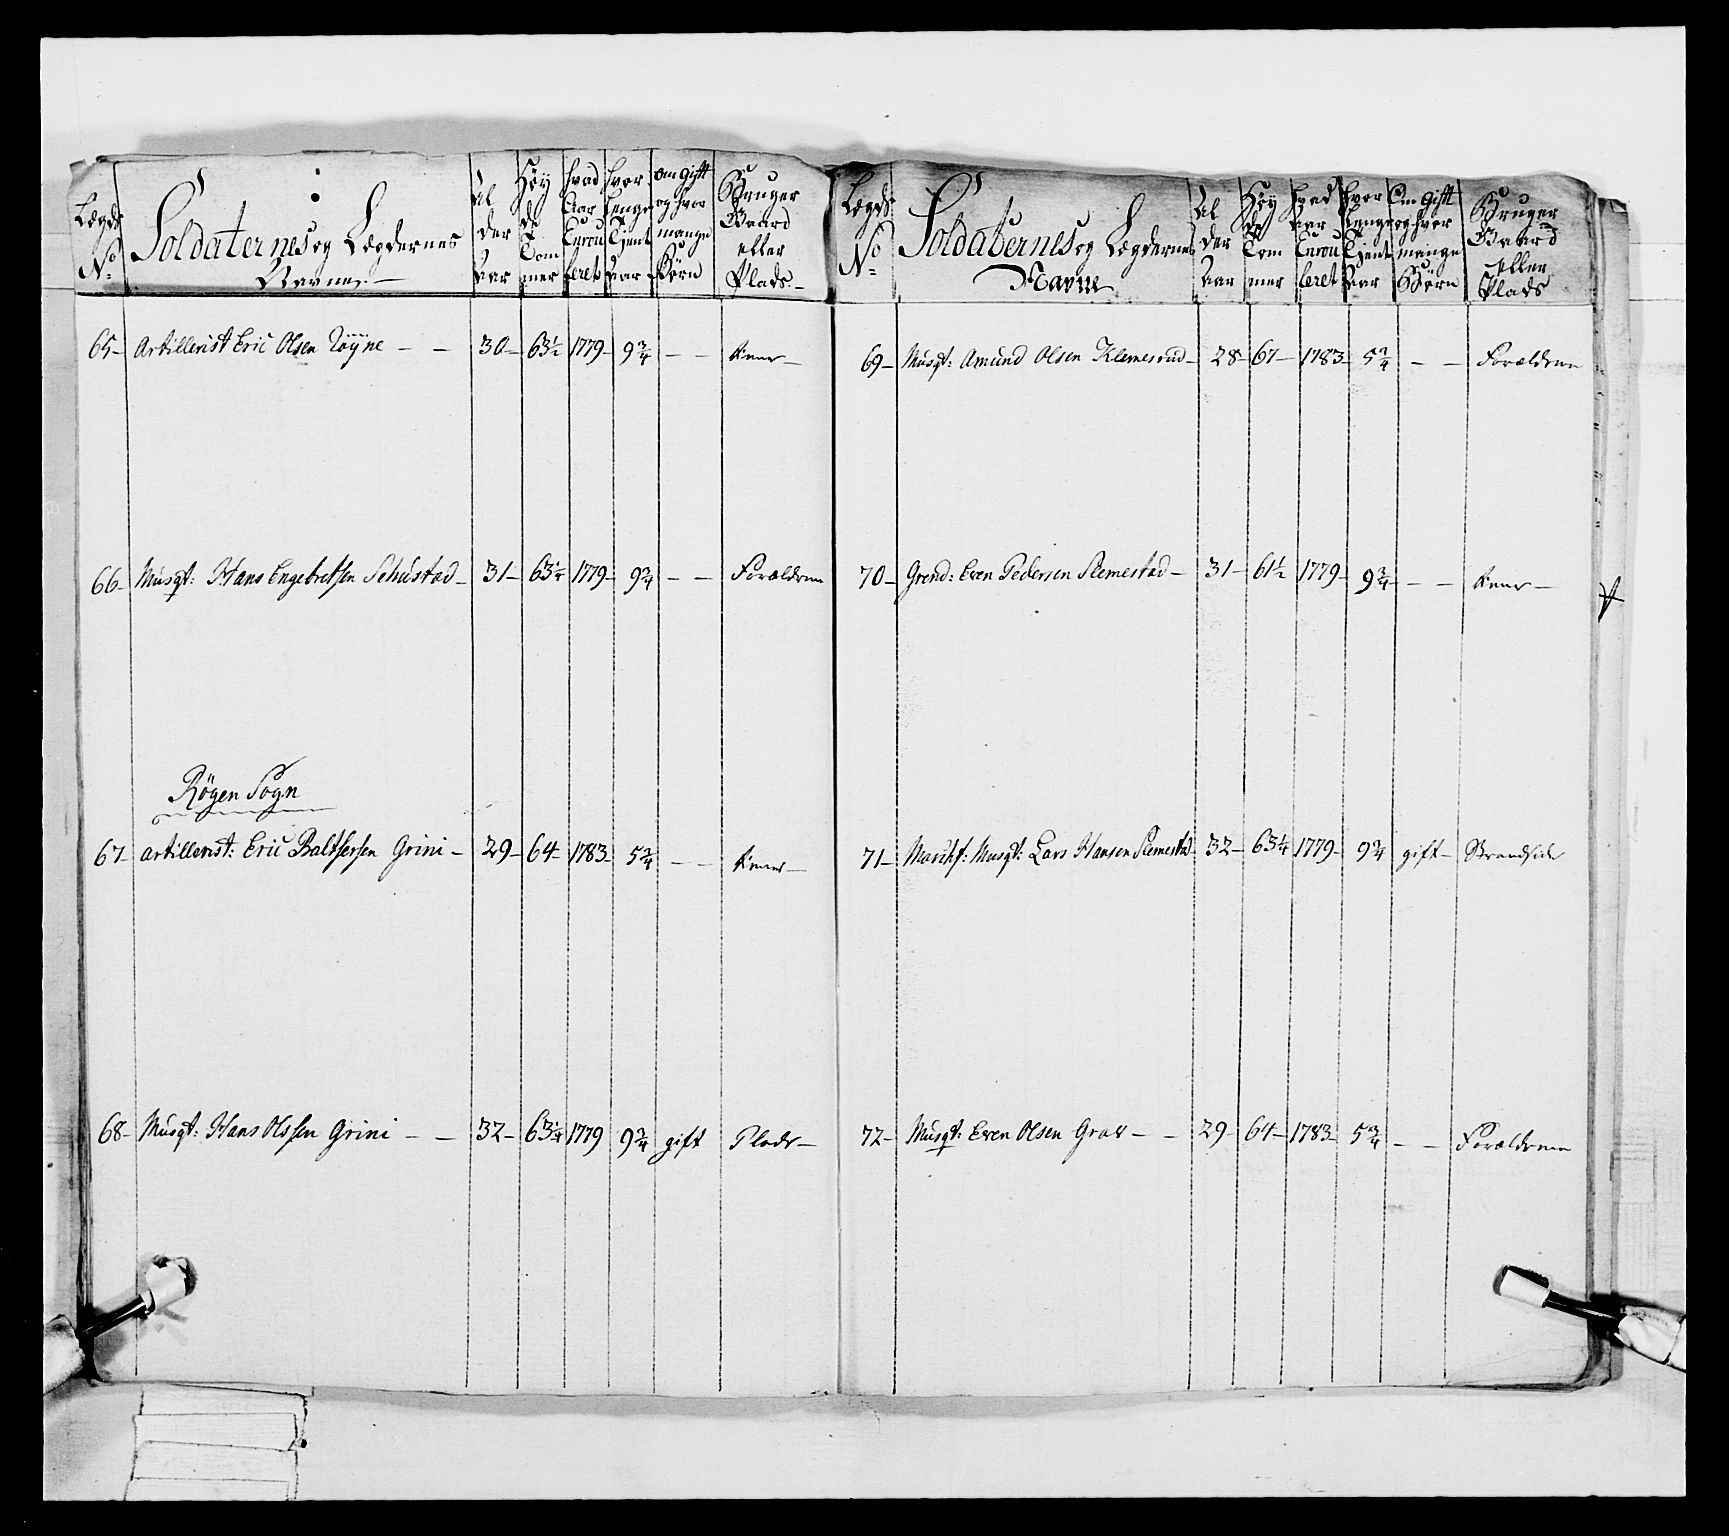 Lægds No
Soldaternes og Lægdernes Navne
Al der Aar
Høy de Tom mer
hvad Aar Enrou leret
hvor lenge Tjent Aar
om Gift og hvor mange Børn
Bruger Gaard eller Plads
65 Artillerist Eric Olsen Tøyne 30 63½ 1779 9¾
66 Musqt: Hans Engebretsen 31 1779 9¾ Forældrene
Røgen Sogn
67 Artillerist: Eric Baltsersen Grini 29 64 1783 5¾
68 Musqt: Hans Olssen Grini 32 63¼ 1779 9¾ gift Plads
Lægds No
Soldaternes og Lægdernes Navne
Al der Aar
Høy de Tom mer
hvad Aar Enrou leret
hvor lenge Tjent Aar
Om Gift og hvor mange Børn
Bruger Gaard eller Plads
69 Musqt: Amund Olsen Klemesrud 28 67 1783 5¾ Forældrene
70 Grend: Even Pedersen Slemestad 31 61½ 1779 9¾
71 Musqt: Lars Hansen Slemestad 32 63¼ 1779 9¾ gift Strandside
72 Musqt: Even Olsen 29 64 1783 5¾ Forældrene